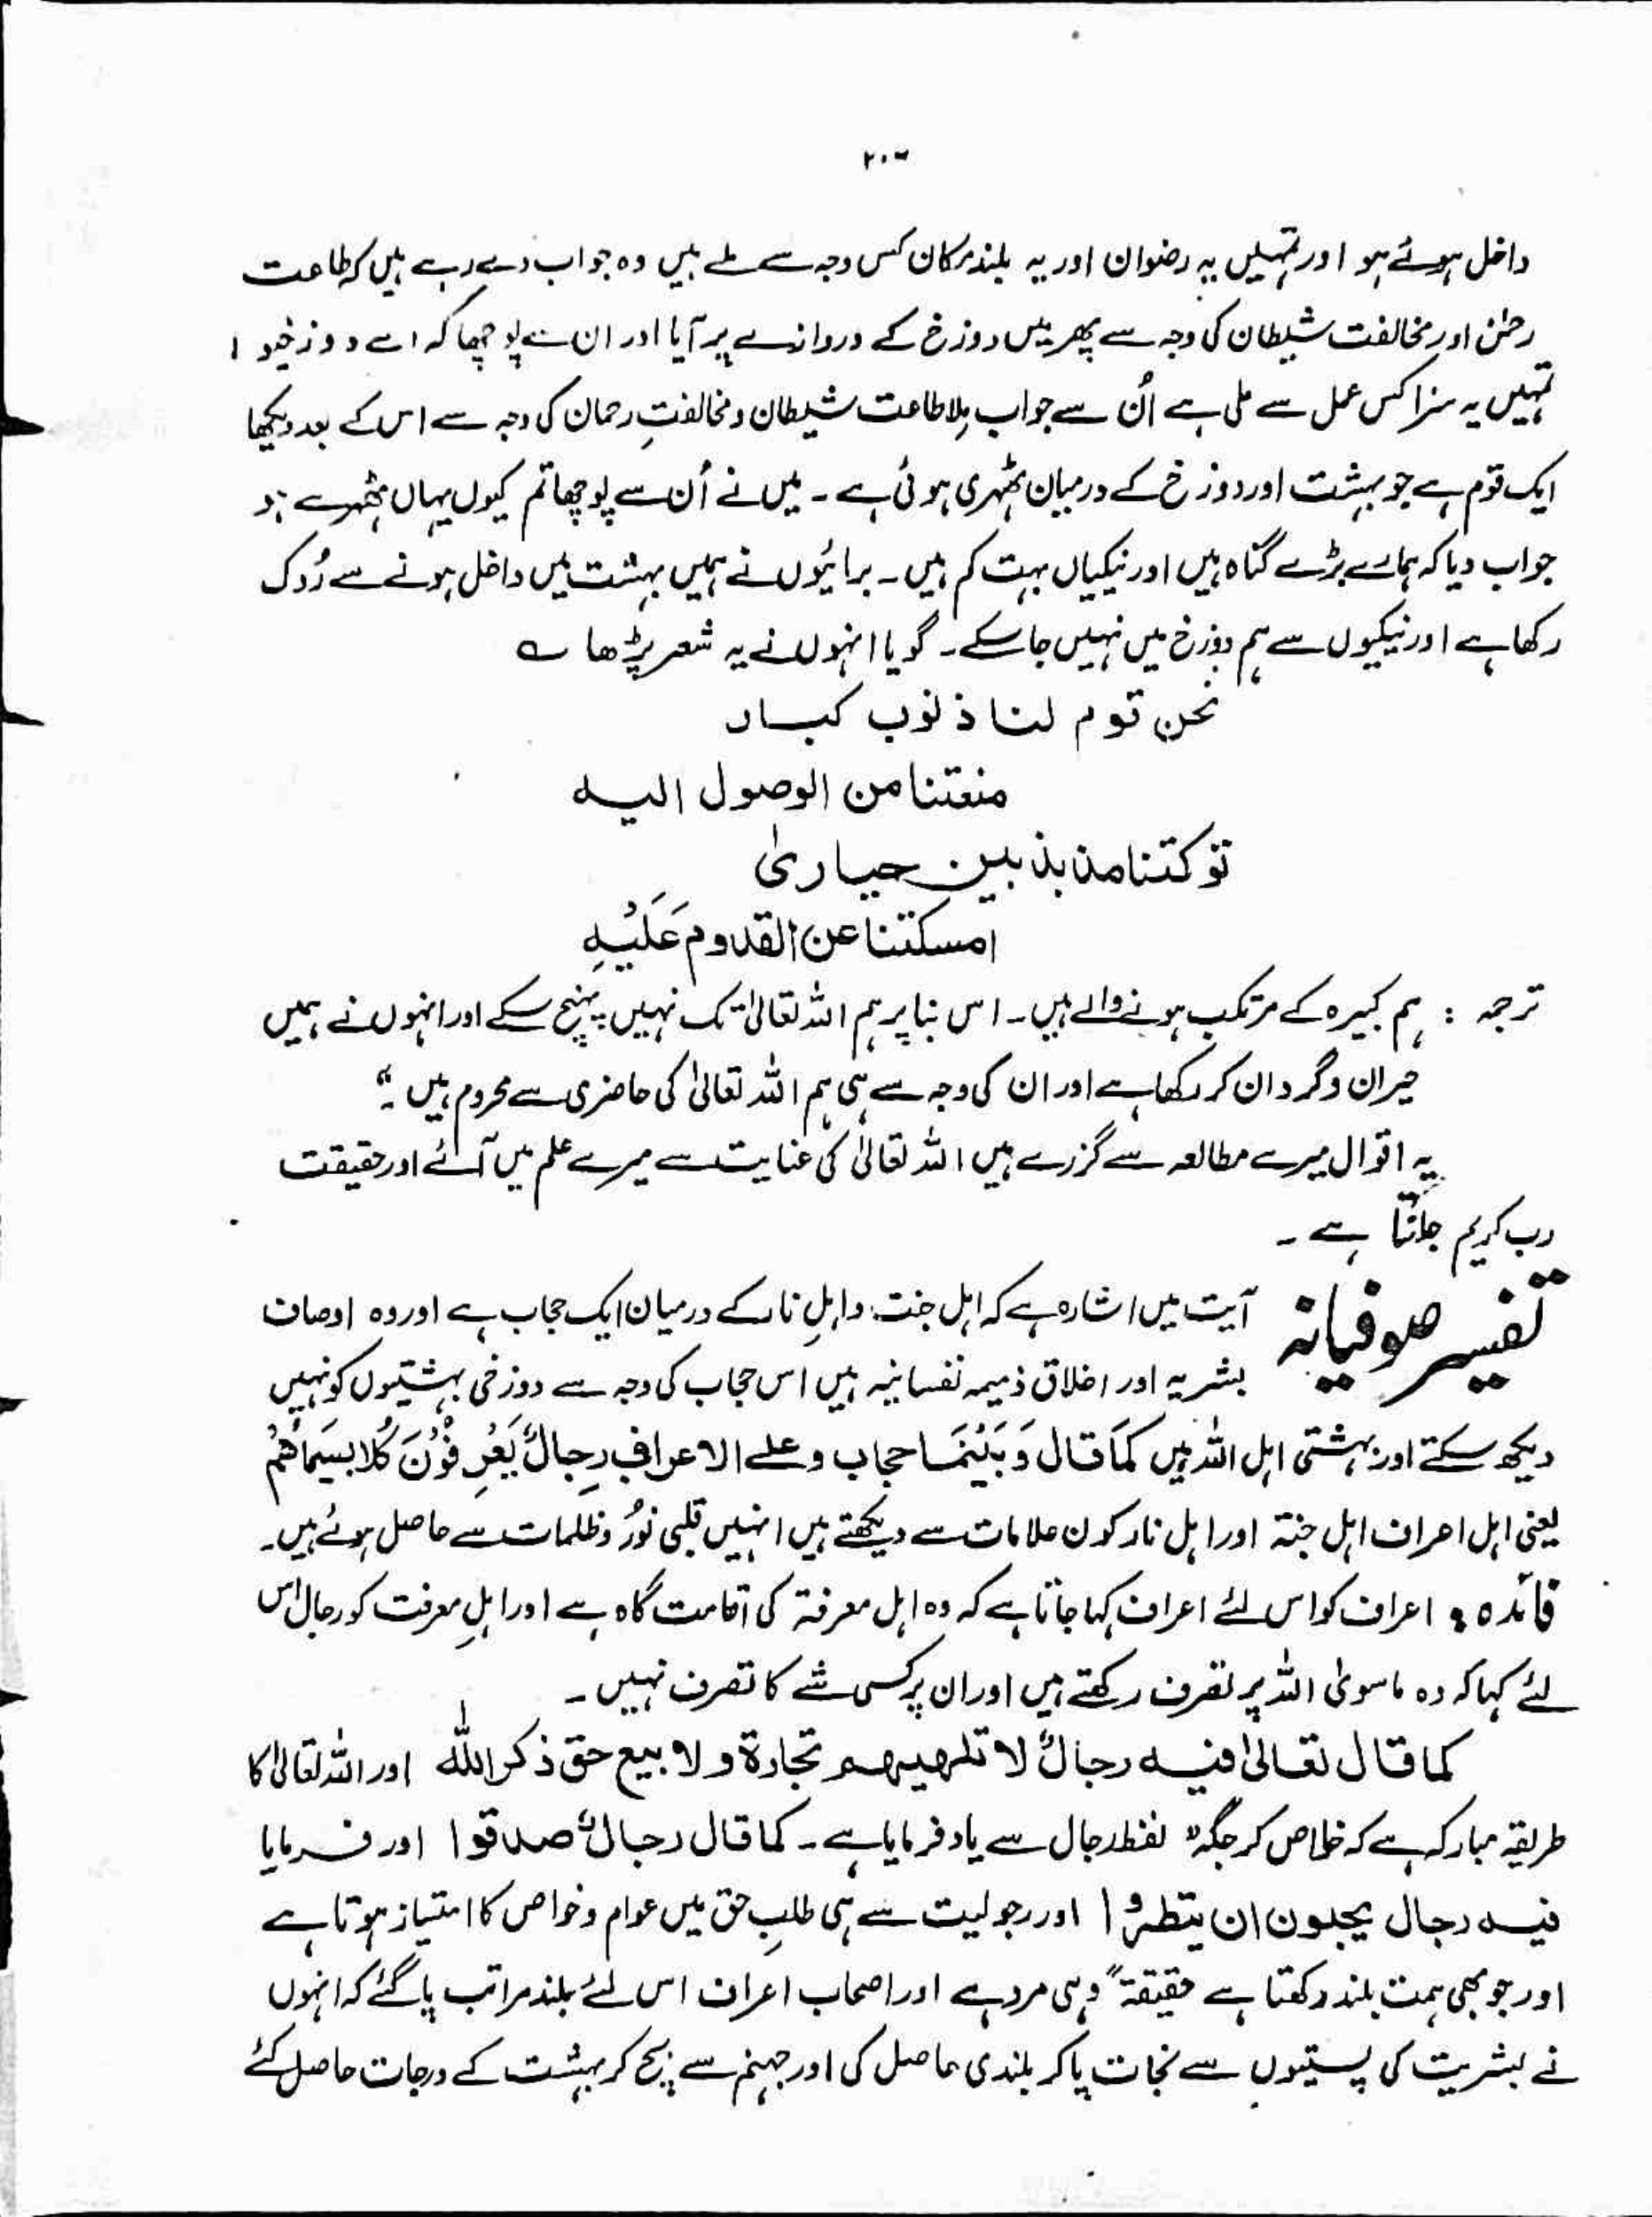 داخل ہوئے ہو اور تمہیں یہ رضوان اور یہ بلند مکان کس وجہ سے ملے ہیں وہ جواب دے رہے ہیں کہ طاعت
رحمٰن اور مخالفت شیطان کی وجہ سے پھر میں دوزخ کے دروازے پر آیا اور ان سے پوچھا کہ اے دوزخیو !
تمہیں یہ سزا کس عمل سے ملی ہے اُن سے جواب ملا طاعت شیطان و مخالفتِ رحمان کی وجہ سے اس کے بعد دیکھا
ایک قوم ہے جو بہشت اور دوزخ کے درمیان ٹھہری ہوئی ہے ۔ میں نے اُن سے پوچھا تم کیوں یہاں ٹھہرے ہو
جواب دیا کہ ہمارے بڑے گناہ ہیں اور نیکیاں بہت کم ہیں ۔ برائیوں نے ہمیں بہشت میں داخل ہونے سے رُوک
رکھا ہے اور نیکیوں سے ہم دوزخ میں نہیں جا سکے ۔ گویا انہوں نے یہ شعر پڑھا ؎
نحن قوم لنا ذنوب کبار
منعتنا من الوصول الیہ
ترکتنا مذبذبین حیاریٰ
امسکتنا عن القدوم عَلَیْہِ
ترجمہ : ہم کبیرہ کے مرتکب ہونے والے ہیں ۔ اس بنا پر ہم اللہ تعالیٰ تک نہیں پہنچ سکے اور انہوں نے ہمیں
حیران و گردان کر رکھا ہے اور ان کی وجہ سے ہی ہم اللہ تعالیٰ کی حاضری سے محروم ہیں ۔“
یہ اقوال میرے مطالعہ سے گزرے ہیں اللہ تعالیٰ کی عنایت سے میرے علم میں آئے اور حقیقت
رب کریم جانتا ہے ۔
تفسیر صوفیانہ آیت میں اشارہ ہے کہ اہل جنت و اہلِ نار کے درمیان ایک حجاب ہے اور وہ اوصاف
بشریہ اور اخلاق ذمیمہ نفسانیہ ہیں اس حجاب کی وجہ سے دوزخی بہشتیوں کو نہیں
دیکھ سکتے اور بہشتی اہل اللہ ہیں کَمَا قال وَبَیْنَہُمَا حجاب و علے الاعرافِ رِجالٌ یَعْرِفُوْنَ کُلا بِسِیْمَاھُمْ
یعنی اہل اعراف اہل جنۃ اور اہل نار کو ان علامات سے دیکھتے ہیں انہیں قلبی نُورُ و ظلمات سے حاصل ہوئے ہیں ۔
فائدہ : اعراف کو اس لئے اعراف کہا جاتا ہے کہ وہ اہل معرفۃ کی اقامت گاہ ہے اور اہلِ معرفت کو رجال اس
لئے کہا کہ وہ ماسوی اللہ پر تصرف رکھتے ہیں اور ان پر کسی شے کا تصرف نہیں ۔
کما قال تعالیٰ فیہ رجالٌ لا تلھیھم تجارۃ ولا بیع حق ذکر اللہ اور اللہ تعالیٰ کا
طریقہ مبارکہ ہے کہ خاص کر جگہ لفظ رجال سے یاد فرمایا ہے ۔ کما قال رجالٌ صدقوا اور فرمایا
فیہ رجال یحبون ان یتطہروا اور رجولیت سے ہی طلبِ حق میں عوام و خواص کا امتیاز ہوتا ہے
اور جو بھی ہمت بلند رکھتا ہے حقیقۃً وہی مرد ہے اور اصحاب اعراف اس لئے بلند مراتب پا گئے کہ انہوں
نے بشریت کی پستیوں سے نجات پا کر بلندی حاصل کی اور جہنم سے بچ کر بہشت کے درجات حاصل کئے